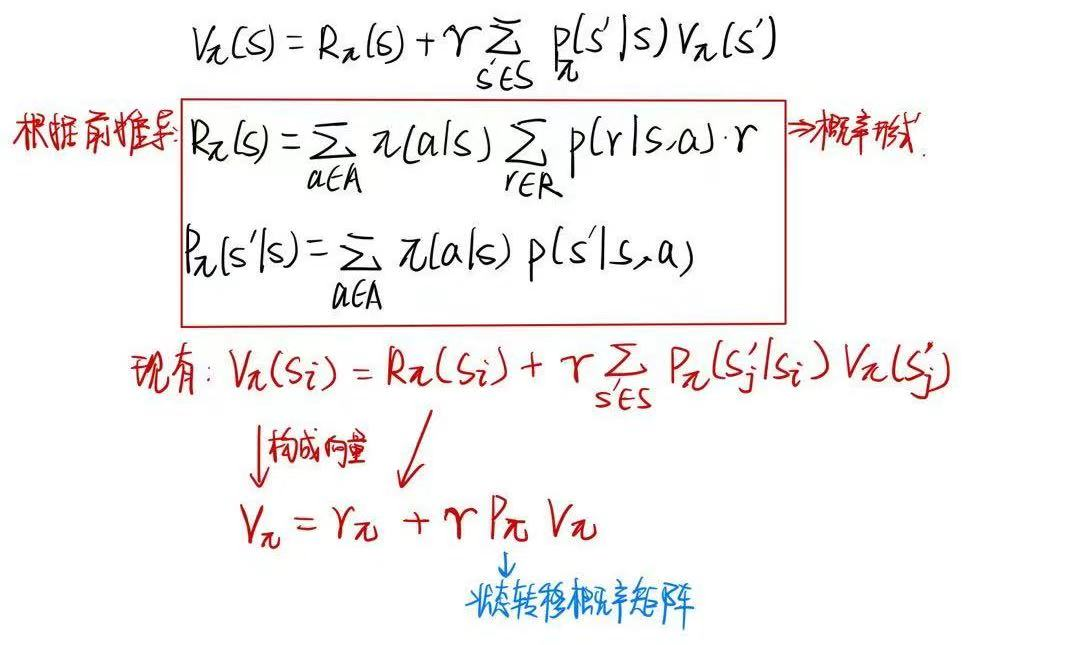 Vπ(s) = Rπ(s) + γ Σ_{s'∈S} pπ(s'|s) Vπ(s')
根据前推导: Rπ(s) = Σ_{a∈A} π(a|s) Σ_{r∈R} p(r|s,a)·r ⇒概率形式.
Pπ(s'|s) = Σ_{a∈A} π(a|s) p(s'|s,a)
现有: Vπ(si) = Rπ(si) + γ Σ_{s'∈S} Pπ(s'j|si) Vπ(s'j)
↓构成向量
Vπ = γπ + γ Pπ Vπ
↓
状态转移概率矩阵